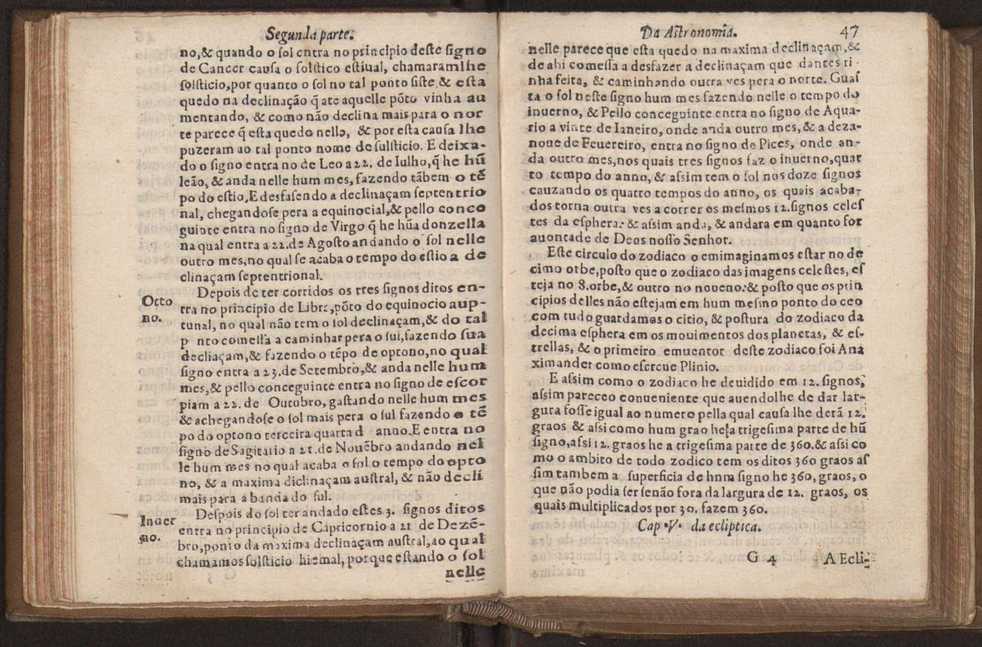 Segunda parte.
no,& quando o sol entra no principio deste signo
de Cancer causa o solstico estiual, chamaramlhe
solsticio,por quanto o sol no tal ponto siste & esta
quedo na declinação q̃ ate aquelle põto vinha au
mentando, & como não declina mais para o nor
te parece q̃ esta quedo nello, & por esta causa lhe
puzeram ao tal ponto nome de sulsticio. E deixa-
do o signo entra no de Leo a 22. de Iulho,q̃ he hũ
leão, & anda nelle hum mes, fazendo tãbem o tẽ
po do estio,E desfasendo a declinaçam septentrio
nal, chegandose pera a equinocial,& pello conce
guinte entra no signo de Virgo q̃ he hũa donzella
na qual entra a 22.de Agosto andando o sol nelle
outro mes,no qual se acaba o tempo do estio a de
clinaçam septentrional.
Depois de ter corridos os tres signos ditos en-
Otto
no.
tra no principio de Libre,põto do equinocio aup-
tunal, no qual não tem o sol declinaçam,& do tal
p nto comessa a caminhar pera o sul,fazendo sua
decliaçam,& fazendo o tẽpo de optono,no qual
signo entra a 23.de Setembro,& anda nelle hum
mes,& pello conceguinte entra no signo de escor
piam a 22. de Outubro, gastando nelle hum mes
& achegandose o sol mais pera o sul fazendo o tẽ
po do optono terceira quarta d anno.E entra no
signo de Sagitario a 21.de Nouẽbro andando nel
le hum mes no qual acaba o sol o tempo do opto
no, & a maxima diclinaçam austral, & não decli
mais para a banda do sul.
Despois do sol ter andado estes 3. signos ditos
Inuer
no.
entra no principio de Capricornio a 21 de Dezẽ-
bro,ponto da maxima declinaçam austral,ao qual
chamamos solsticio hiemal, porque estando o sol
nelle
Da Astronomia.
47
nelle parece que esta quedo na maxima declinaçam,&
de ahi comessa a desfazer a declinaçam que dantes ti
nha feita, & caminhando outra ves pera o norte. Guas
ta o sol neste signo hum mes fazendo nelle o tempo do
inuerno, & Pello conceguinte entra no signo de Aqua-
rio a vinte de Ianeiro, onde anda outro mes, & a deza-
noue de Feuereiro, entra no signo de Pices, onde an-
da outro mes,nos quais tres signos faz o inuerno,quar
to tempo do anno, & assim tem o sol nos doze signos
cauzando os quatro tempos do anno, os quais acaba-
dos torna outra ves a correr os mesmos 12.signos celes
tes da esphera: & assim anda, & andara em quanto for
a vontade de Deos nosso Senhor.
Este circulo do zodiaco o emimaginamos estar no de
cimo orbe,posto que o zodiaco das imagens celestes, es
teja no 8.orbe,& outro no noueno:& posto que os prin
cipios delles não estejam em hum mesmo ponto do ceo
com tudo guardamos o citio, & postura do zodiaco da
decima esphera em os mouimentos dos planetas, & es-
trellas, & o primeiro emuentor deste zodiaco foi Ana
ximander como escreue Plinio.
E assim como o zodiaco he deuidido em 12. signos,
assim pareceo conueniente que auendolhe de dar lar-
gura fosse igual ao numero pella qual causa lhe derã 12.
graos & assi como hum grao hesa trigesima parte de hũ
signo,assi 12. graos he a trigesima parte de 360.& assi co
mo o ambito de todo zodico tem os ditos 360 graos as
sim tambem a superficia de hum signo he 360, graos, o
que não podia ser senão fora da largura de 12. graos, os
quais multiplicados por 30. fazem 360.
Cap .V. da ecliptica.
G 4
A Ecli-